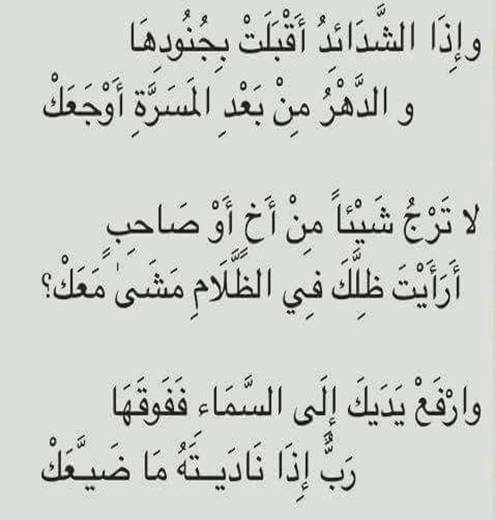 وإِذَا الشَّدَائِدُ أَقْبَلَتْ بِجُنُودِهَا
و الدَّهْرُ مِنْ بَعْدِ المَسَرَّةِ أَوْجَعَكْ
لا تَرْجُ شَيْئاً مِنْ أَخٍ أَوْ صَاحِبٍ
أَرَأَيْتَ ظِلَّكَ فِي الظَّلَامِ مَشَىٰ مَعَكْ؟
وارْفَعْ يَدَيكَ إِلَى السَّمَاءِ فَفَوقَهَا
رَبٌّ إِذَا نَادَيـتَهُ مَا ضَيـَّعَكْ